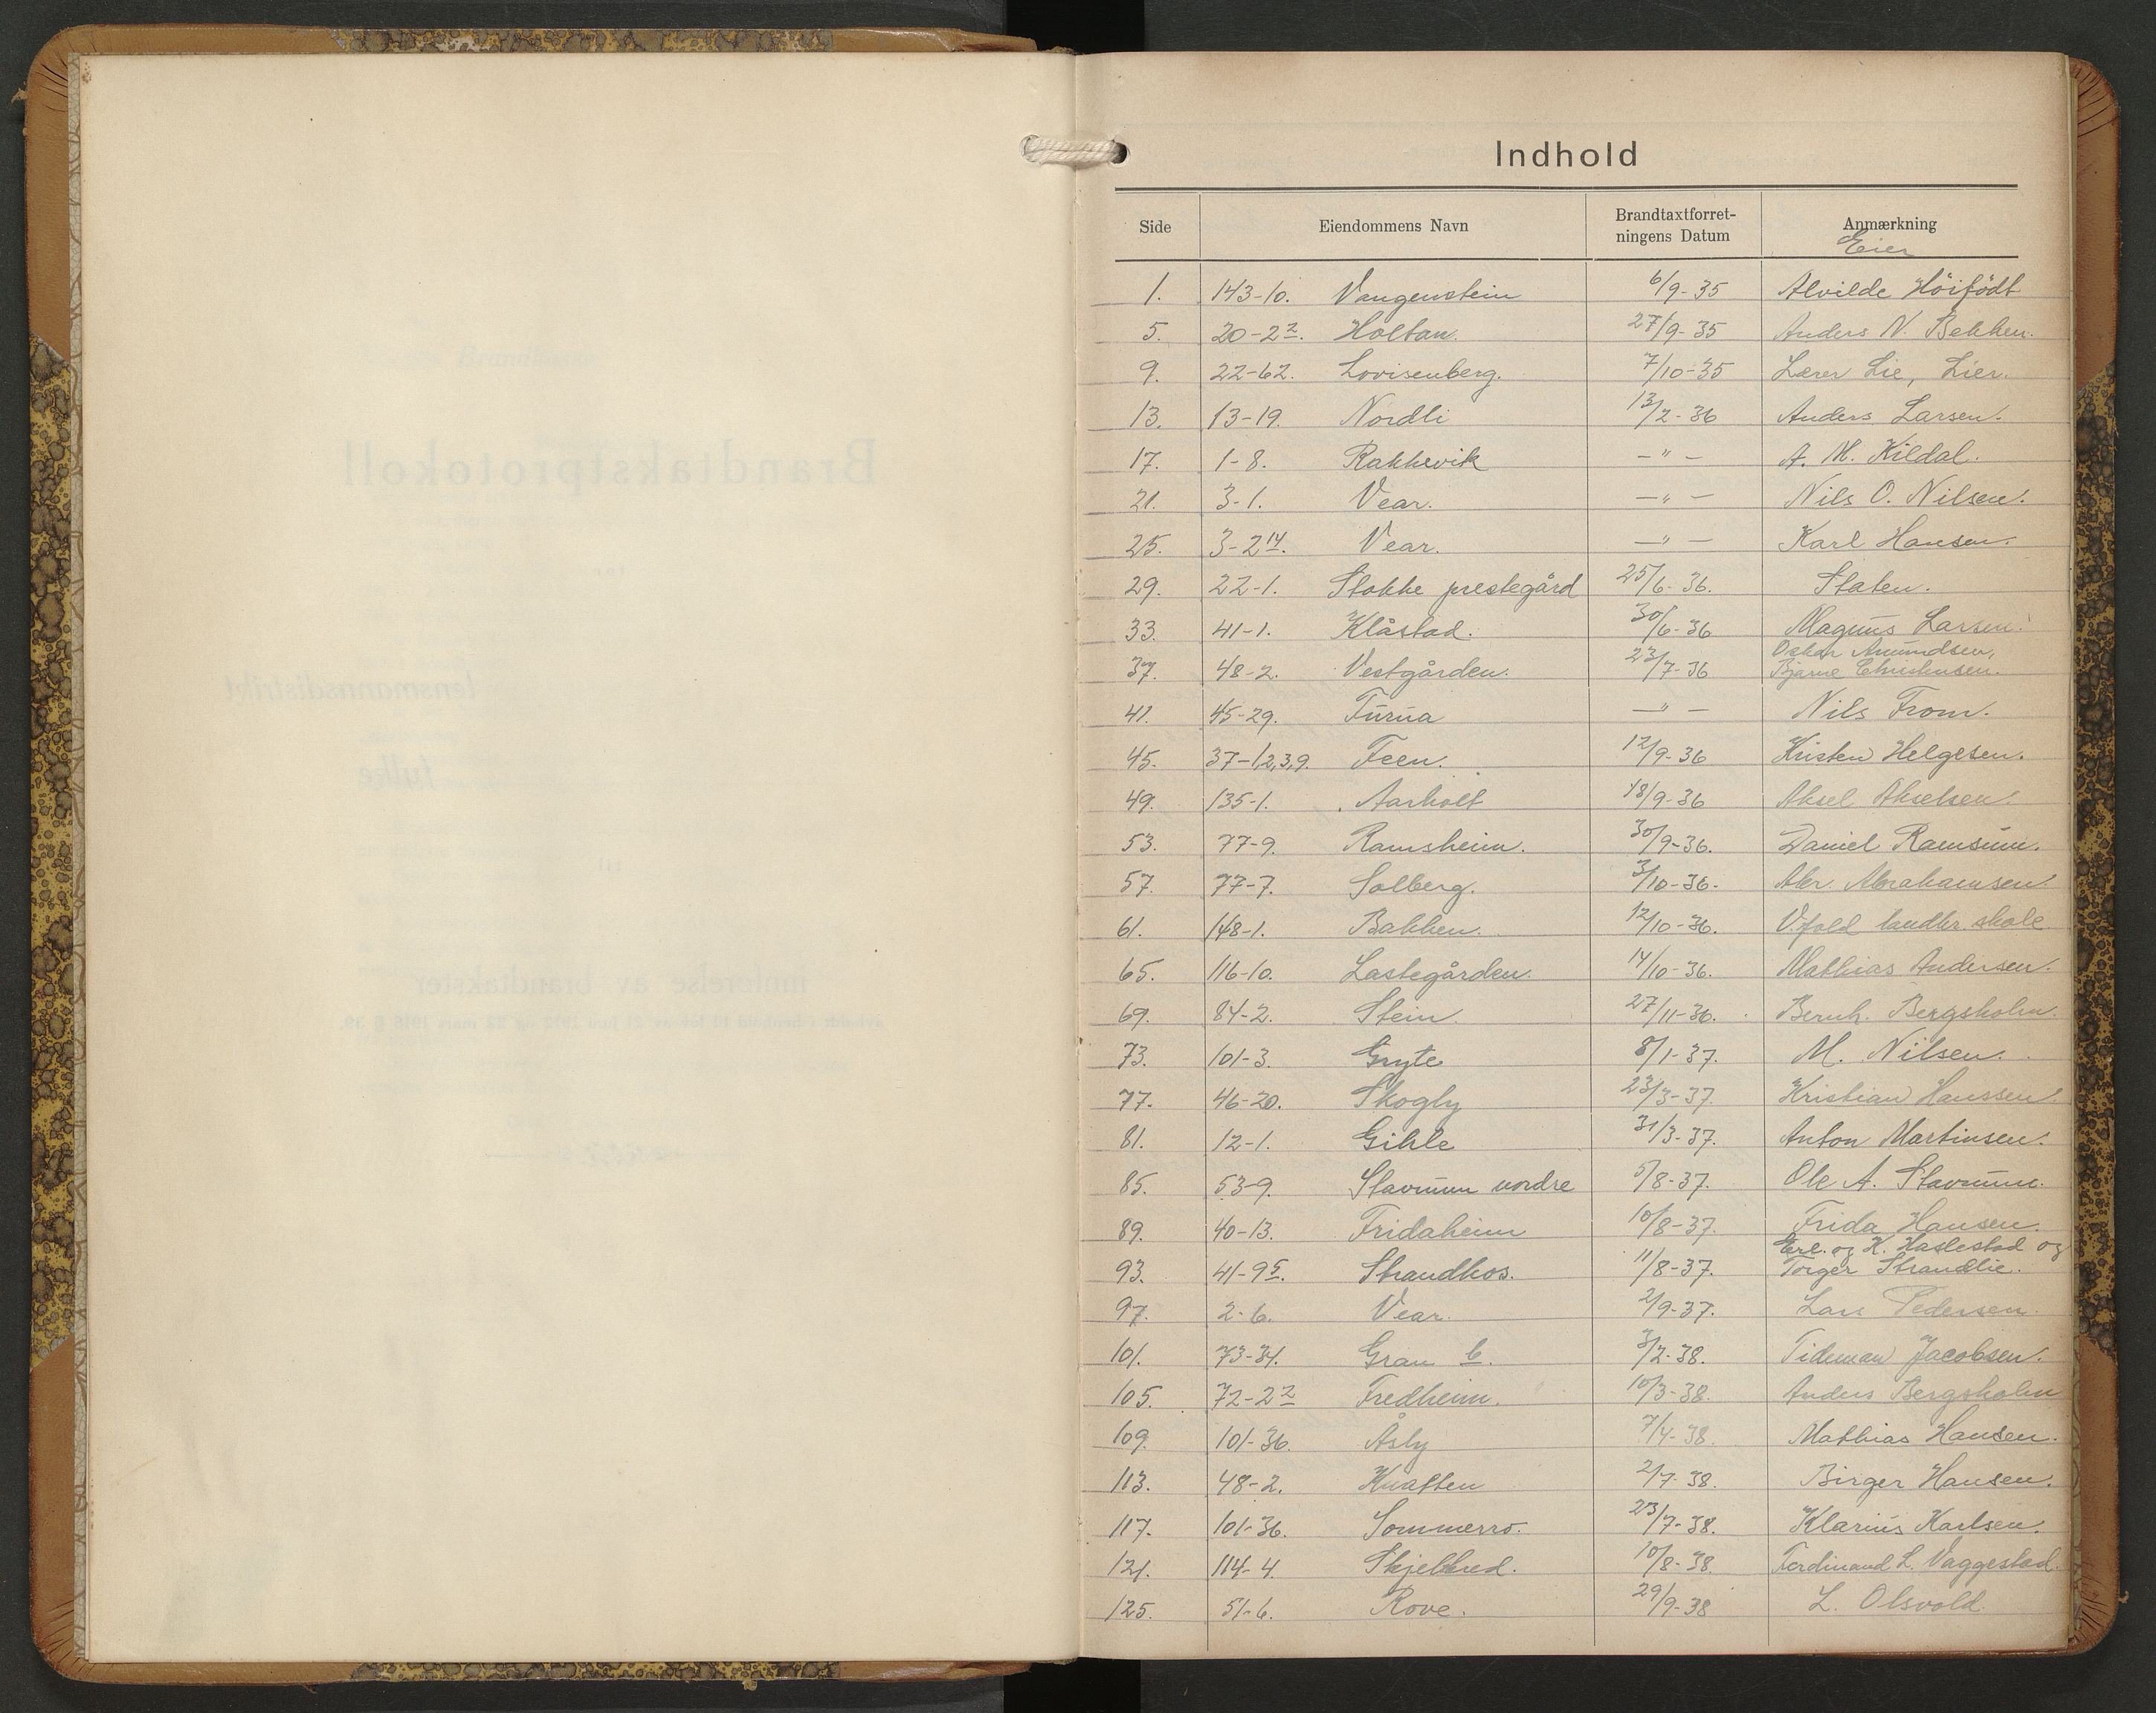 Indhold
Side Eiendommens Navn Brandtaxtforret-ningens Datum Anmærkning
Eier
1. 143-10. Vangenstein 6/9-35 Alvilde Höifödt
5. 20-2². Holtan. 27/9-35 Anders N. Bekken.
9. 22-62. Lovisenberg. 7/10-35 Lærer Lie, Lier.
13. 13-19. Nordli 13/2-36 Anders Larsen.
17. 1-8. Rakkevik -"- A. M. Kildal.
21. 3-1. Vear. -"- Nils O. Nilsen.
25. 3-2¹⁴. Vear. -"- Karl Hansen.
29. 22-1. Stokke prestegård 25/6-36. Staten.
33. 41-1. Klåstad. 30/6-36 Magnus Larsen.
37. 48-2. Vestgården. 23/7-36 Oskar Amundsen,
Bjarne Christensen.
41. 45-29. Furua -"- Nils From.
45. 37-1,2,3,9. Feen. 12/9-36 Kristen Helgesen.
49. 135-1. Aarholt 18/9-36 Aksel Akselsen.
53. 77-9. Ramsheim. 30/9-36. Daniel Ramsum.
57. 77-7. Solberg. 3/10-36. Abr. Abrahamsen.
61. 148-1. Bakken. 12/10-36. V.fold landbr. skole
65. 116-10. Lastegården. 14/10-36. Mathias Andersen.
69. 84-2. Stein. 27/11-36. Bernh. Bergsholm.
73. 101-3. Gryte 8/1-37. M. Nilsen.
77. 46-20. Skogly 23/3-37. Kristian Hanssen.
81. 12-1. Gihle 31/3-37. Anton Martinsen.
85. 53-9. Stavnum nordre 5/8-37. Ole A. Stavnum.
89. 40-13. Fridaheim 10/8-37. Frida Hansen.
93. 41-9⁵. Strandkos. 11/8-37. Erl. og K. Haslestad og
Torger Strandlie.
97. 2-6. Vear. 2/9-37. Lars Pedersen.
101. 73-34. Gran b. 3/2-38. Tideman Jacobsen.
105. 72-2² Fredheim. 10/3-38. Anders Bergsholm
109. 101-36. Åsly 7/4-38. Mathias Hansen.
113. 48-2. Knatten 2/7-38. Birger Hansen.
117. 101-36. Sommerro. 23/7-38. Klarius Karlsen.
121. 114-4. Skjelbred. 10/8-38. Ferdinand L. Vaggestad.
125. 51-6. Rove. 29/9-38 L. Olsvold